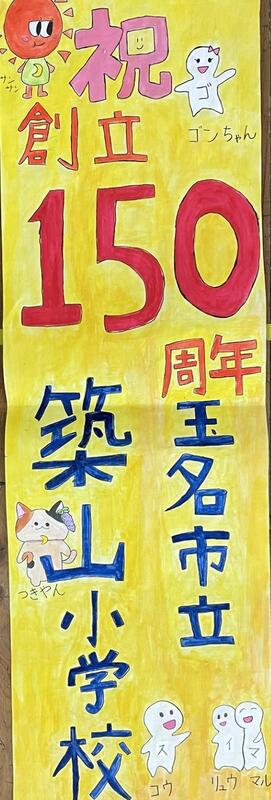 サンサン
祝
ゴ
ゴンちゃん
創立
150
周年
玉名市立
築山小学校
つきやん
ス
コウ
イ
マ
リュウ
マル